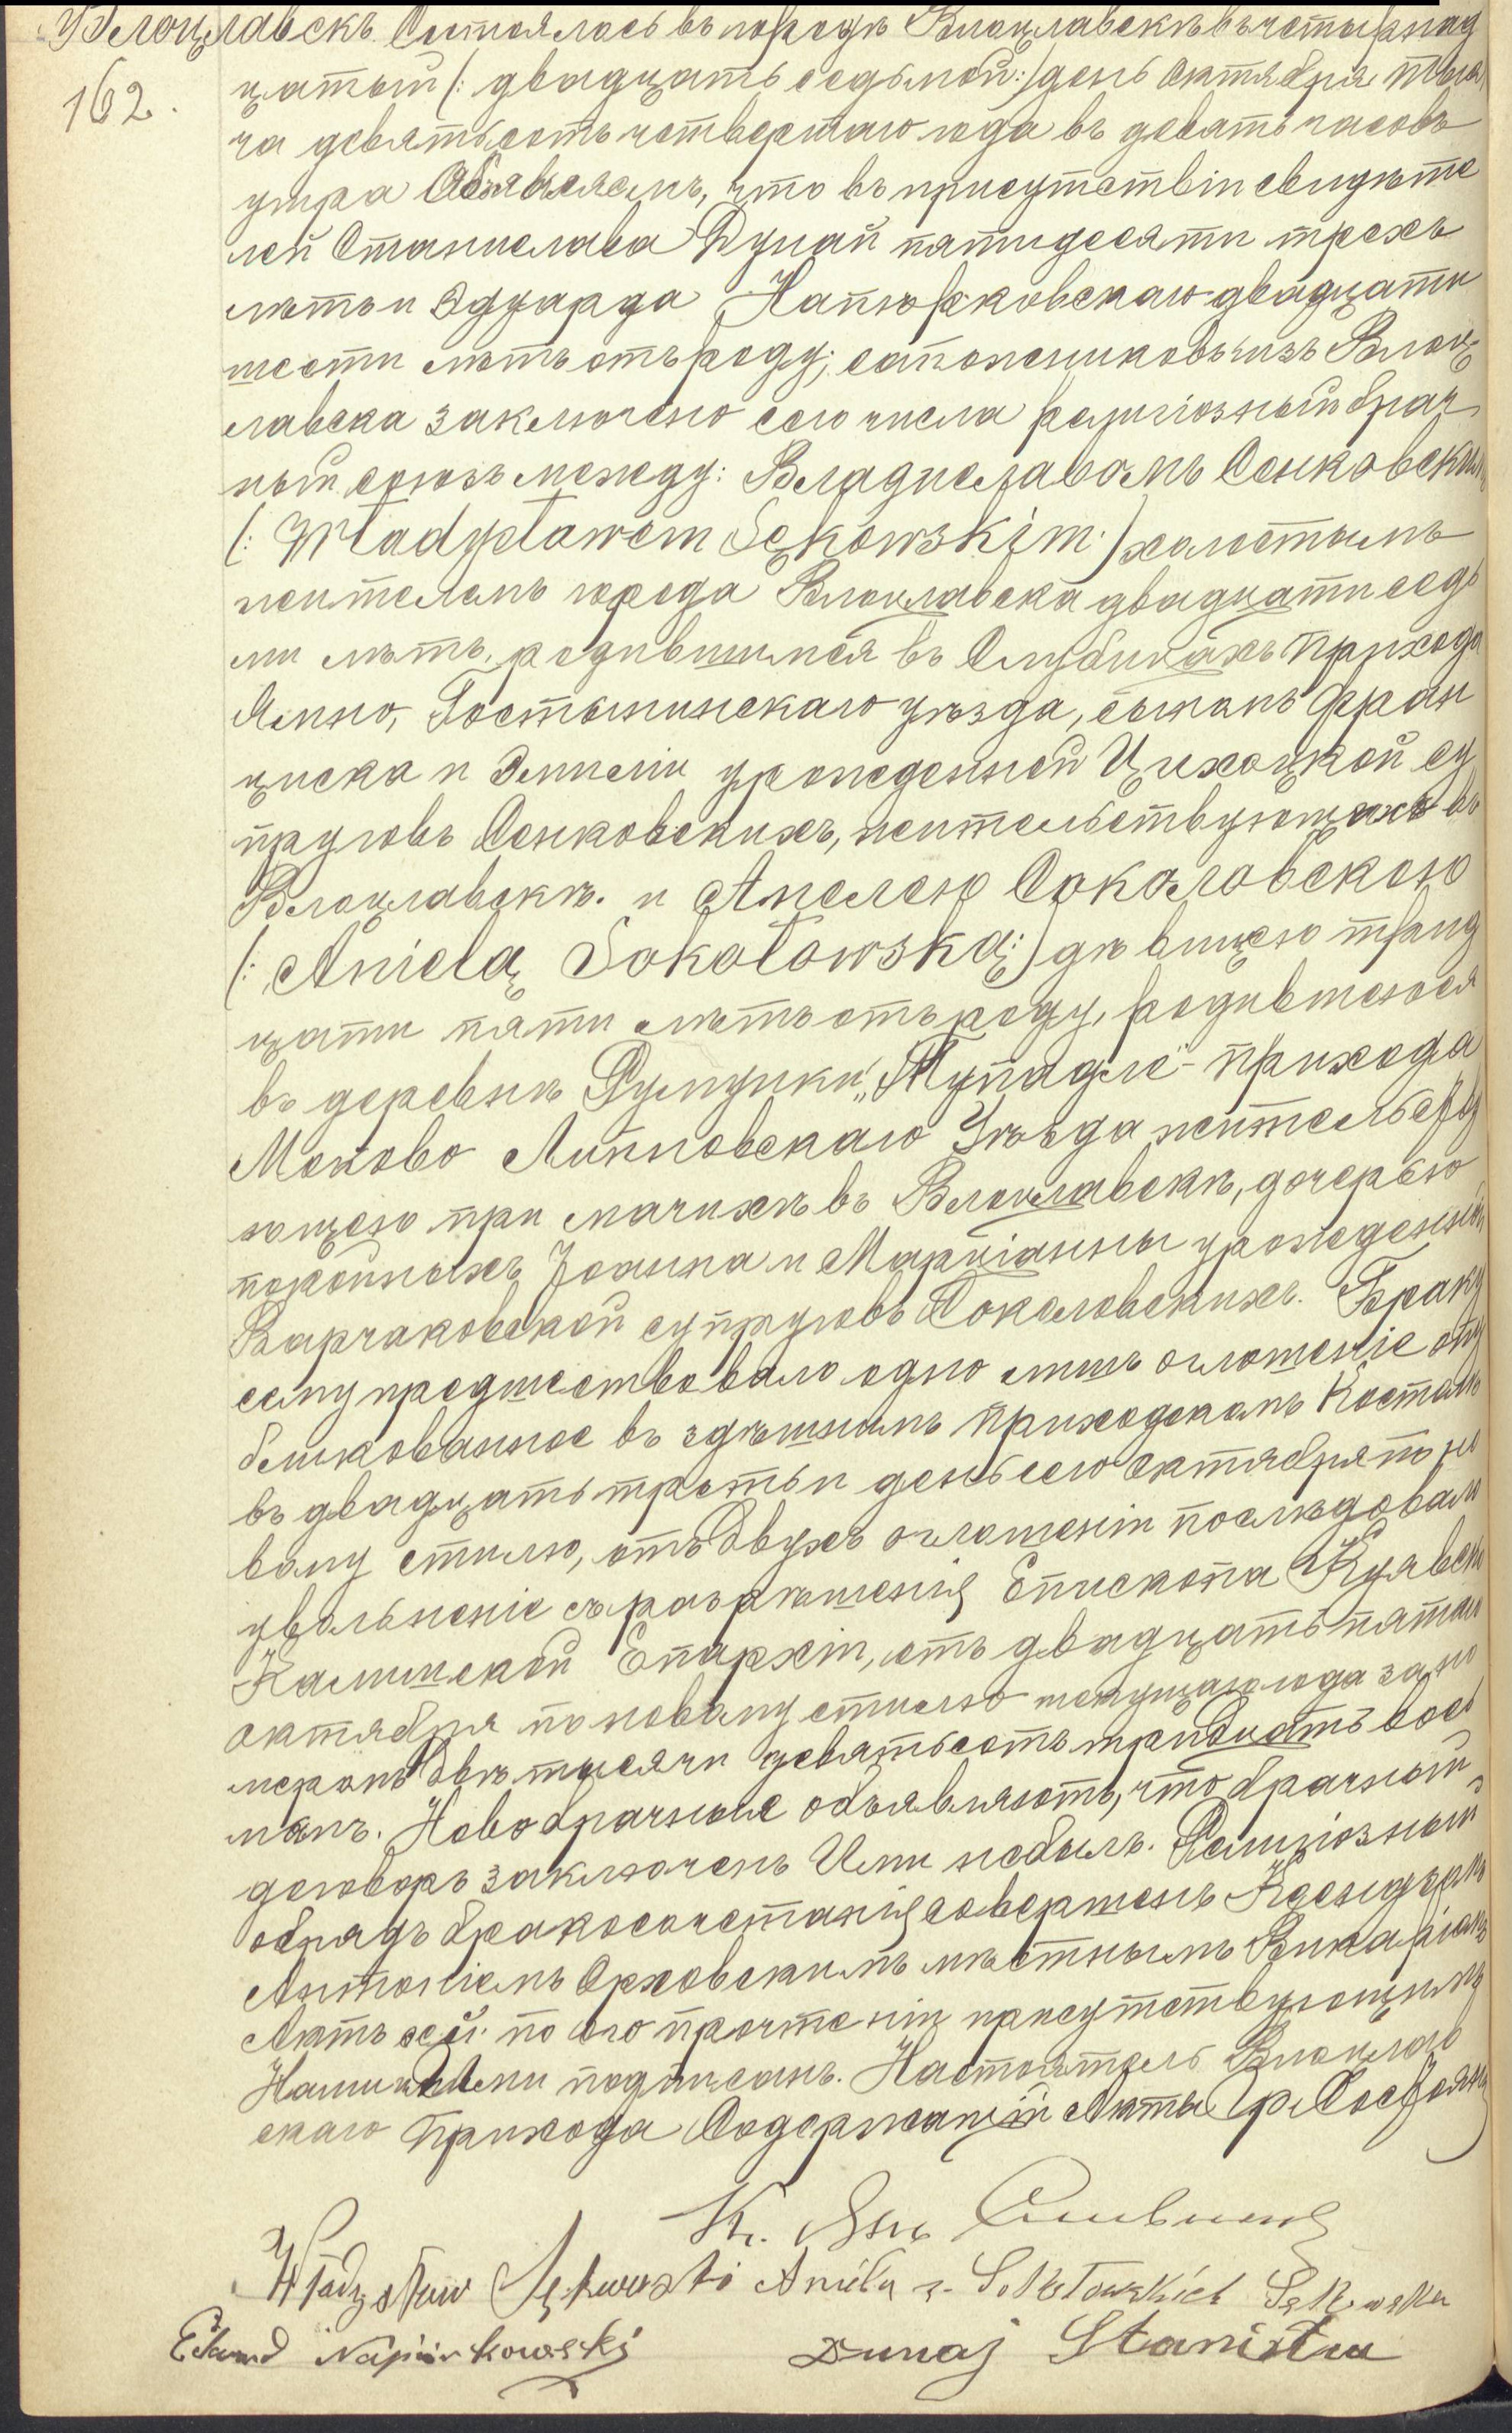 Влоцлавскъ Состоялось въ городѣ Влоцлавскѣ въ четырнад
162.
цатый (: двадцать седьмой:) день Октября тыся
ча девятьсотъ четвертаго года въ девять часовъ
утра Объявляемъ, что въ присутствіи свидѣте
лей Станислава Дунай пятидесяти трехъ
лѣтъ и Эдуарда Напюрковскаго двадцати
шести лѣтъ отъ роду; сапожниковъ изъ Влоц
лавска заключено сего числа религіозный брач
ный союзъ между: Владиславомъ Сенковскимъ
(: Władysławem Sękowskim :) холостымъ
жителемъ города Влоцлавска двадцати седь
ми лѣтъ, родившимся въ Слубицахъ прихода
Ямно, Гостынинскаго уѣзда, сыномъ Фран
циска и Эмиліи урожденной Цихоцкой су
пруговъ Сенковскихъ, жительствующихъ въ
Влоцлавскѣ. и Анелею Соколовскою
(: Anielą Sokołowską :) дѣвицею трид
цати пяти лѣтъ отъ роду, родившеюся
въ деревнѣ Румунки „Тупадле" прихода
Моково Липновскаго Уѣзда жительству
ющею при мачихѣ въ Влоцлавскѣ, дочерью
покойныхъ Іоанна и Маріанны урожденной
Варчаковской супруговъ Соколовскихъ. Браку
сему предшествовало одно лишь оглашеніе опу
бликованное въ здѣшнимъ приходскомъ Костелѣ
въ двадцать третьи день сего октября по но
вому стилю, отъ двухъ оглашеній послѣдовало
увольненіе съ разрѣшенія Епископа Куявско
Калишской Епархіи, отъ двадцать пятаго
октября по новому стилю текущаго года за но
меромъ двѣ тысячи девятьсотъ тридцать вось
мымъ. Новобрачные объявляютъ, что брачный
договоръ заключенъ Ими небылъ. Религіозный
обрядъ бракосочетанія совершенъ Ксендзомъ
Антоніемъ Орховскимъ мѣстнымъ Викаріемъ
Актъ сей по его прочтеніи присутствующимъ
Нами и Ими подписанъ. Настоятель Влоцлав
скаго прихода Содержащій Акты Гр. Состоянія
К. Янъ
Władysław Sękowski Aniela z Sokołowskich Sękowska
Edward Napiórkowski Dunaj Stanisław